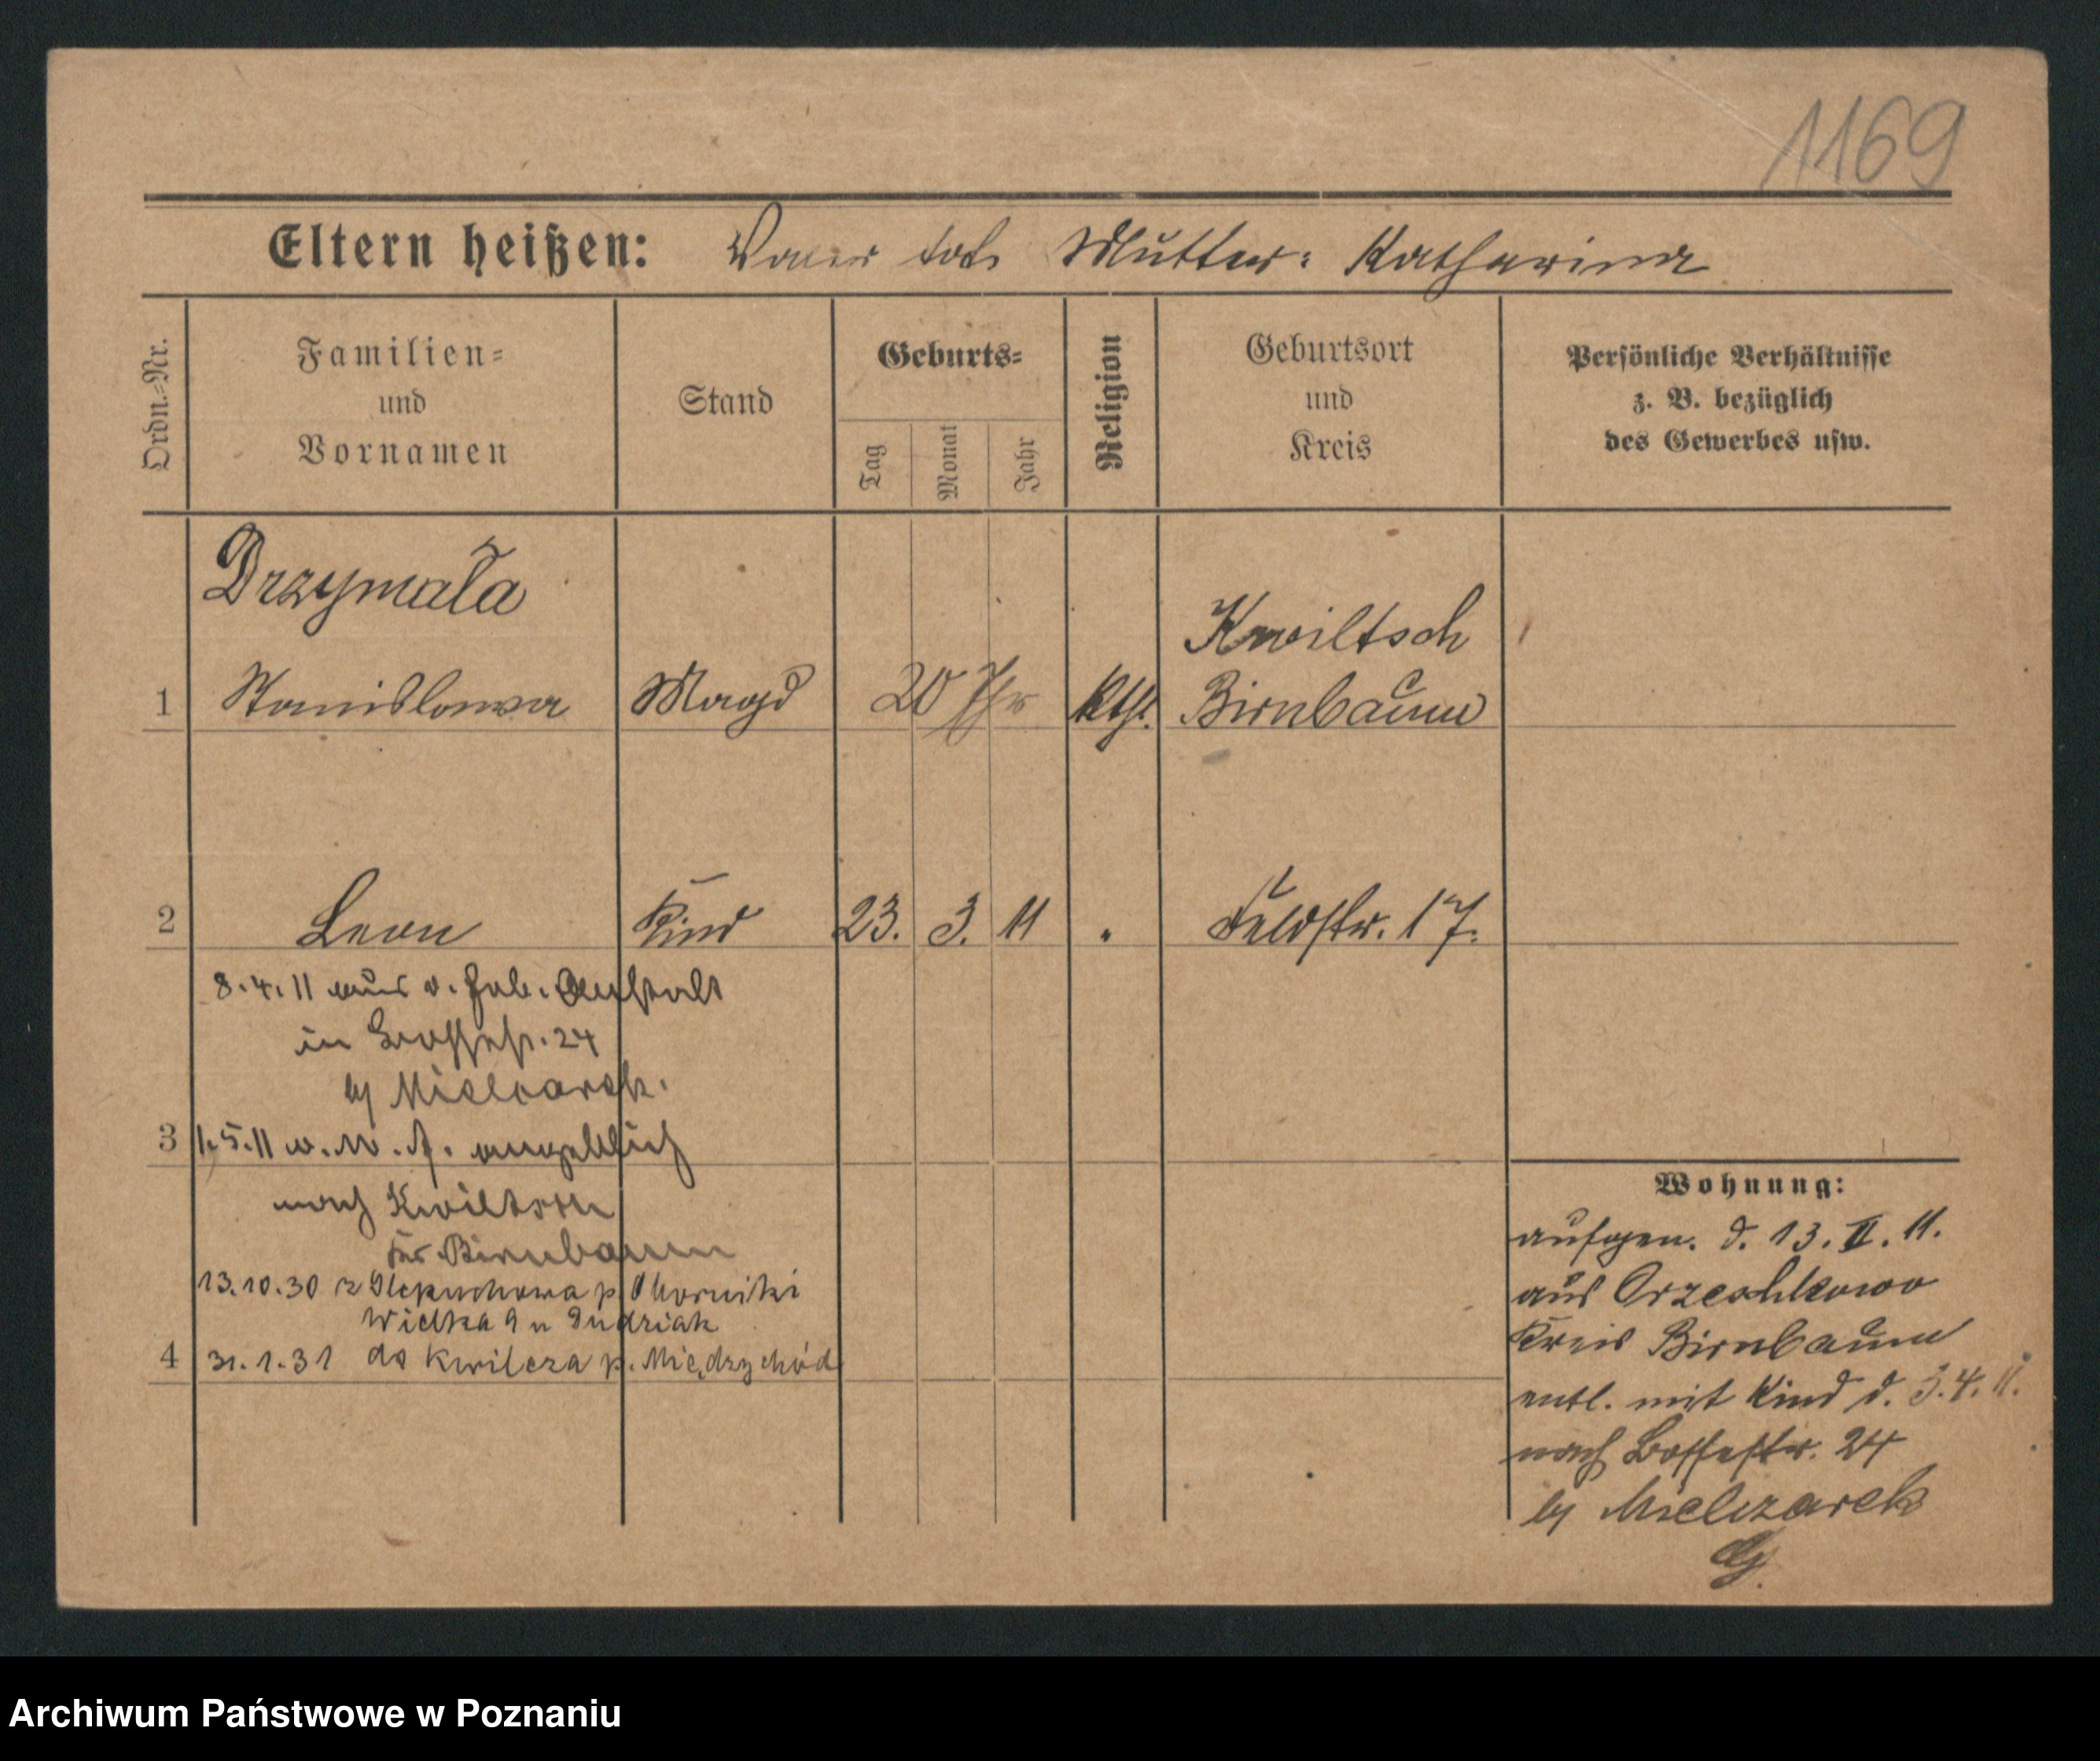 1169
Eltern heißen: Vater tot. Mutter: Katharina
Ordn.=Nr.
Familien=
und
Vornamen
Stand
Geburts=
Tag
Monat
Jahr
Religion
Geburtsort
und
Kreis
Persönliche Verhältnisse
z. B. bezüglich
des Gewerbes usw.
Drzymała
1 Stanislawa Magd 20 Jhr kth. Kwiltsch
Birnbaum
2 Leon Kind 23. 3. 11 " Feldstr. 17.
8.4.11 aus d. Anstalt
in 24
by Mielcarek.
3 1.5.11 angeblich
nach Kwiltsch
Birnbaum
13.10.30 z p. Oborniki
Wielka 9 u
4 31.1.31 do Kwilcza p. Międzychód
Wohnung:
aufgen. d. 13. II. 11.
aus Orzeschkowo
Kreis Birnbaum
entl. mit Kind d. 3.4.11.
nach 24
by Mielczarek
Archiwum Państwowe w Poznaniu